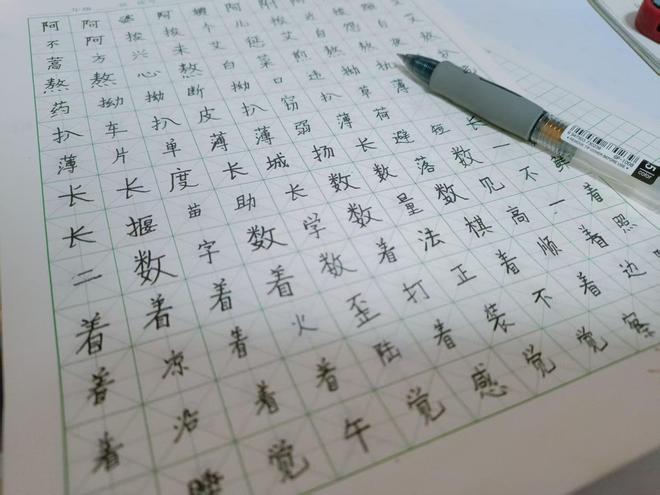 阿 阿 阿 阿
不 阿 拔 拔 不 儿 拔
蒿 方 兴 未 艾 惩 艾 自 怨 自 艾
熬 熬 心 熬 白 菜 煎 熬 熬 夜 熬
药 拗 拗 断 拗 口 违 拗 执 拗 扒
扒 车 扒 皮 扒 窃 扒 草 薄
薄 片 单 薄 薄 弱 薄 荷
长 长 度 长 城 扬 长 避 短 长
长 揠 苗 助 长 数 数 落 数 一
二 数 字 数 学 数 量 数 见 不
着 着 着 着 数 着 法 棋 高 一 着
着 凉 着 火 歪 打 正 着 顺 着 照
着 沿 着 着 陆 着 装 不 着 边
睡 觉 午 觉 感 觉 觉 察